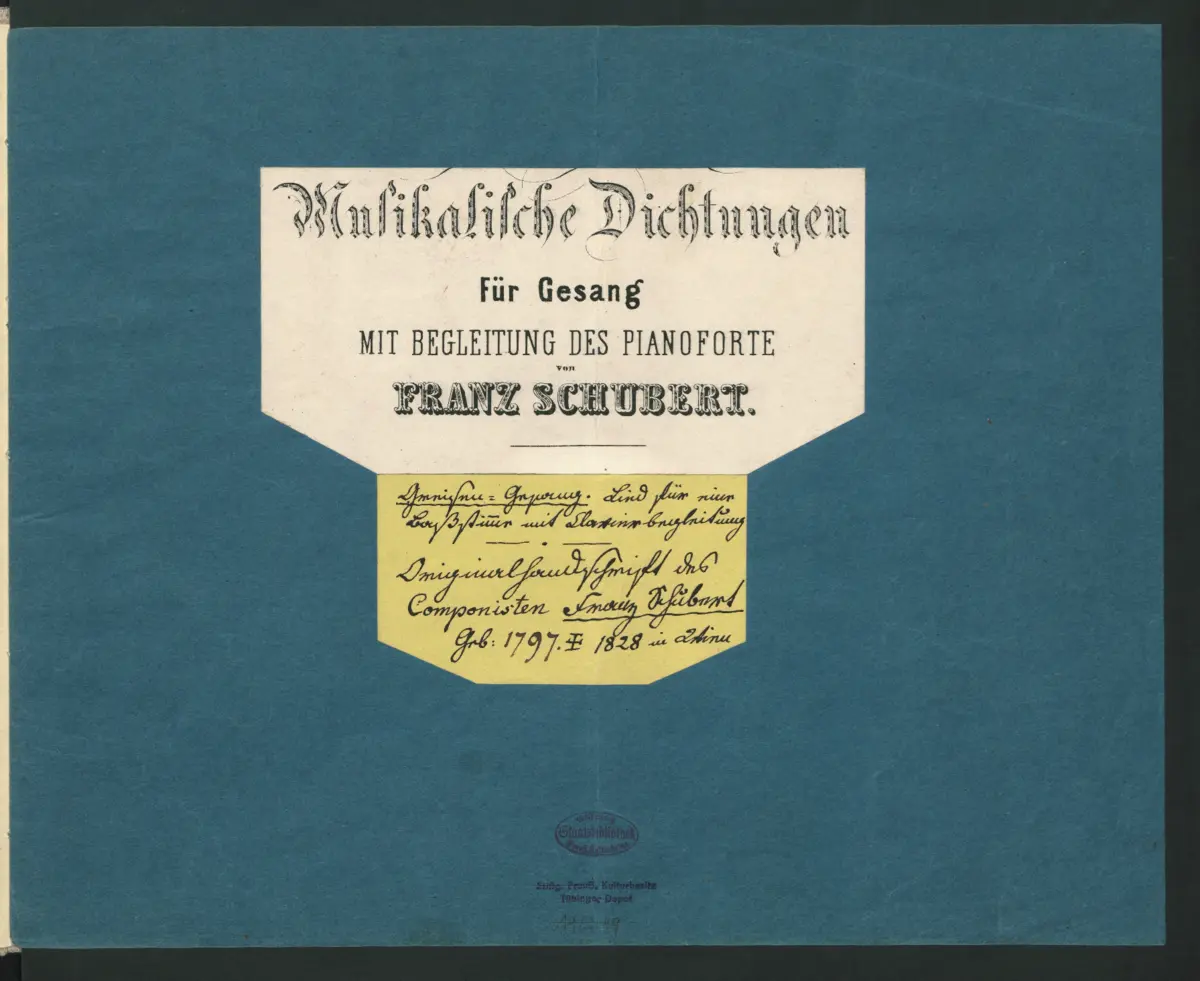 Musikalische Dichtungen
Für Gesang
MIT BEGLEITUNG DES PIANOFORTE
von
FRANZ SCHUBERT.
Greisen=Gesang. Lied für eine
Baßstim̅e mit Clavierbegleitung
Originalhandschrift des
Componisten Franz Schubert
Geb: 1797. 1828 in Wien
Staatsbibliothek
Stiftg. Preuß. Kulturbesitz
Tübinger Depot